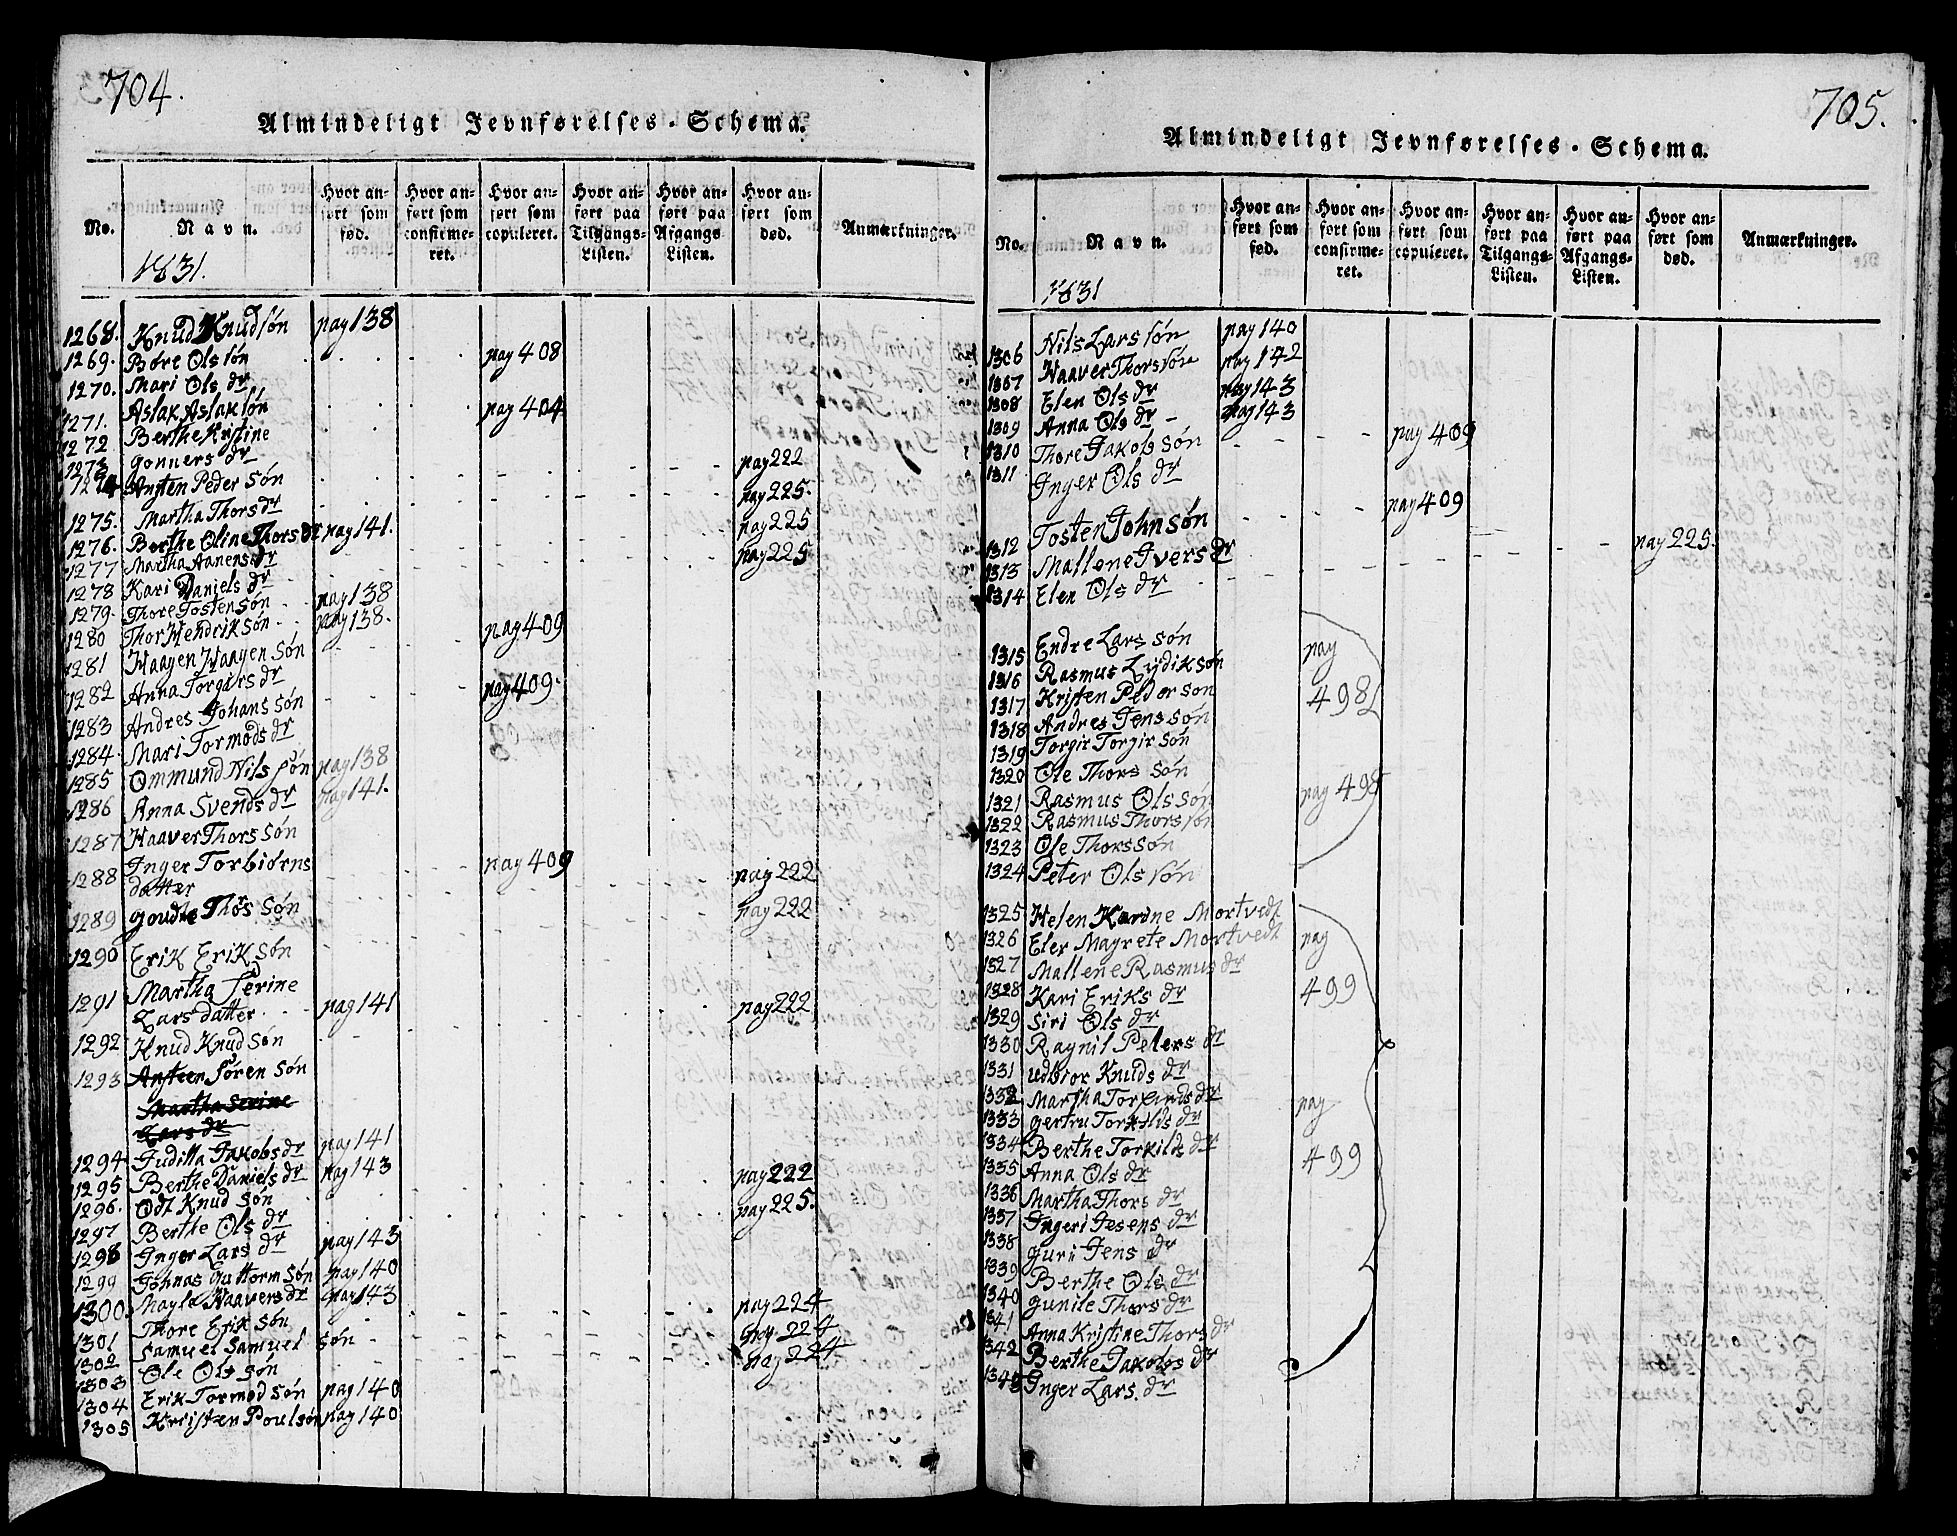 704.
Almindeligt Jevnførelses-Schema.
No. Navn. Hvor anført som fød. Hvor anført som confirmeret. Hvor anført som copuleret. Hvor anført paa Tilgangs-Listen. Hvor anført paa Afgangs-Listen. Hvor anført som død. Anmærkninger.
1831.
1268. Knud Knudsøn pag 138
1269. Børe Olssøn pag 408
1270. Mari Ols dr
1271. Aslak Aslaksøn pag 404
1272 Berthe Kristine
1273 Gonners dr pag 222
1274 Ansten Peder Søn pag 225.
1275. Martha Thors dr pag 225
1276. Berthe Oline Thors dr pag 141.
1277 Martha Aanens dr pag 225
1278 Kari Daniels dr
1279. Thore Tostensøn pag 138
1280 Thor Hendriksøn pag 138.
1281 Haagen Haagen Søn pag 409
1282 Anna Torgirs dr
1283 Andres Johans Søn pag 409.
1284. Mari Tormods dr
1285 Ommund Nils søn pag 138
1286 Anna Svends dr pag 141.
1287 Haaver Thors Søn
1288 Inger Torbiørns pag 409
datter pag 222
1289 Goudte Thors Søn pag 222
1290 Erik Erik Søn
Martha Serine
1291 Lars datter pag 141 pag 222
1292 Knud Knud Søn
1293 Ansteen Søren Søn
Martha Serine
Lars dr
1294 Judilla Jakobs dr pag 141
1295 Berthe Daniels dr pag 143 pag 222
1296. Odt Knud Søn pag 225.
1297 Berthe Ols dr
1298 Inger Lars dr pag 143
1299 Johnas Guttorm Søn pag 140
1300. Mayle Haavers dr pag 143
1301 Thore Erik Søn pag 224
1302 Samuel Samuel Søn pag 224
1303 Ole Ols Søn pag 224
1304 Erik Tormod Søn pag 140
1305 Kristen Poulsøn pag 140
705.
Almindeligt Jevnførelses-Schema.
No. Navn. Hvor anført som fød. Hvor anført som confirmeret. Hvor anført som copuleret. Hvor anført paa Tilgangs-Listen. Hvor anført paa Afgangs-Listen. Hvor anført som død. Anmærkninger.
1831
1306 Nils Lars søn pag 140
1307 Haaver Thorssøn pag 142
1308 Elen Ols dr pag 143
1309 Anna Ols dr pag 143
1310 Thore Jakob Søn pag 409
1311 Inger Ols dr
1312 Tosten John Søn pag 409
1313 Mallene Ivers dr pag 225.
1314 Elen Ols dr
1315 Endre Lars Søn pag
1316 Rasmus Lydik Søn
1317 Kristen Peder Søn 498
1318 Andres Jens Søn
1319 Torgir Torgir Søn
1320 Ole Thors Søn
1321 Rasmus Ols Søn pag 498
1322 Rasmus Thors søn
1323 Ole Thors Søn
1324 Peter Ols søn
1325 Helen Karine Mortvedt
1326 Eler Magrete Mortvedt pag
1327 Mallene Rasmus dr
1328 Kari Eriks dr 499
1329 Siri Ols dr
1330 Ragnil Peters dr
1331 Udbior Knuds dr
1332 Martha Torkilds dr pag
1333 Gertru Torkilds dr
1334 Berthe Torkilds dr
1335 Anna Ols dr 499
1336 Martha Thors dr
1337 Ingeri Jesens dr
1338 Guri Jens dr
1339 Berthe Ols dr
1340 Gunile Thors dr
1341 Anna Kristine Thors dr
1342 Berthe Jakobs dr
1343 Inger Lars. dr